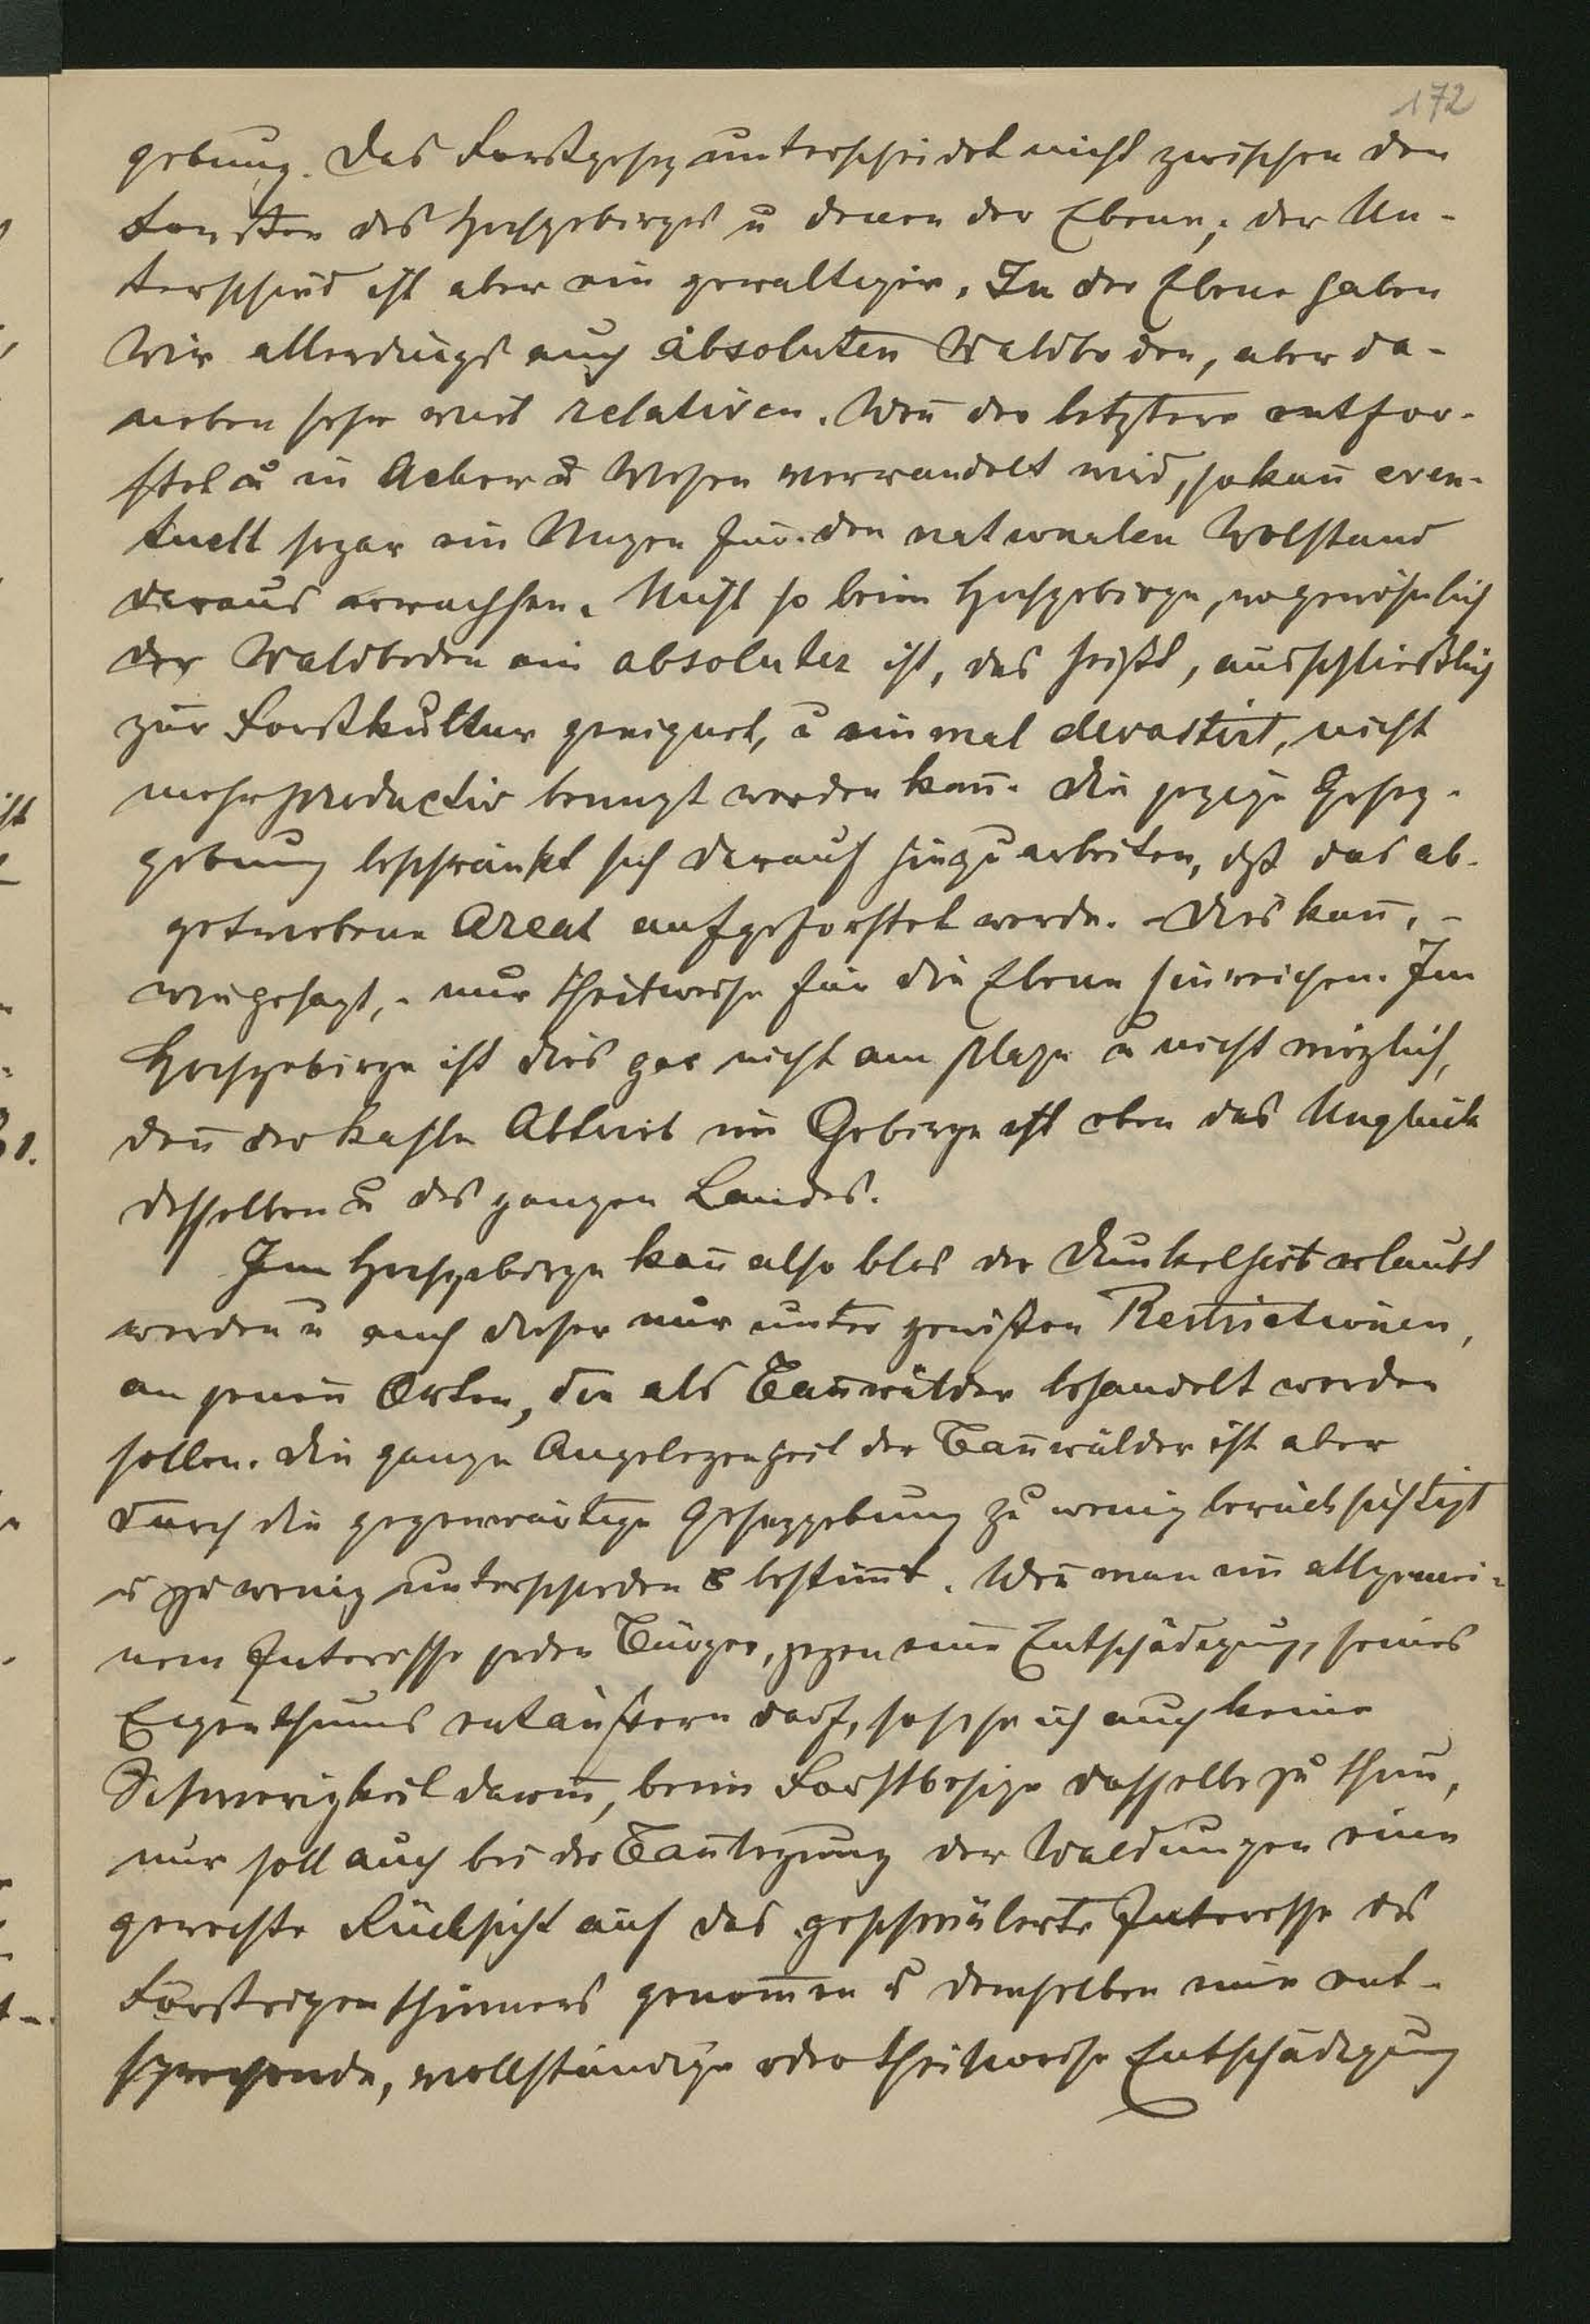 172
gebung. Das Forstgesez unterscheidet nicht zwischen den
Forsten des Hochgebirges u denen der Ebene; der Un-
terschied ist aber ein gewaltiger. In der Ebene haben
wir allerdings auch absoluten Waldboden, aber da-
neben sehr viel relativen. Weñ der letztere entfor-
stet u in Aeker u Wiesen verwandelt wird, so kañ even-
tuell sogar ein Nuzen für den nationalen Wolstand
daraus erwachsen. Nicht so beim Hochgebirge, wo gewöhnlich
der Waldboden ein absoluter ist, das heißt, ausschließlich
zur Forstkultur geeignet, u einmal devastirt, nicht
mehr productiv benuzt werden kañ. Die jezige Gesez-
gebung beschränkt sich darauf hinzuarbeiten, dß das ab-
getriebene Areal aufgeforstet werde. Dies kañ, -
wie gesagt, - nur theilweise für die Ebene hinreichen. Im
Hochgebirge ist dies gar nicht am plaze u nicht möglich,
deñ der kahle Abtrieb im Gebirge ist eben das Unglück
desselben u des ganzen Landes.
Im Hochgebirge kañ also blos der Dunkelhieb erlaubt
werden u auch dieser nur unter gewißen Restrictionen,
an jeneñ Orten, die als Bañwälder behandelt werden
sollen. Die ganze Angelegenheit der Bañwälder ist aber
durch die gegenwärtige Gesezgebung zu wenig berücksichtigt
u zu wenig unterschieden & bestim̄t. Weñ man im allgemei-
nem Interesse jeden Bürger, gegen eine Entschädigung, seines
Eigenthums entäußern darf, so sehe ich auch keine
Schwierigkeit dariñ, beim Forstbesize dasselbe zu thun,
nur soll auch bei der Bañlegung der Waldungen eine
gerechte Rücksicht auf das geschmälerte Interesse des
Forsteigenthümers genom̄en u demselben eine ent-
sprechende, vollständige oder theilweise Entschädigung